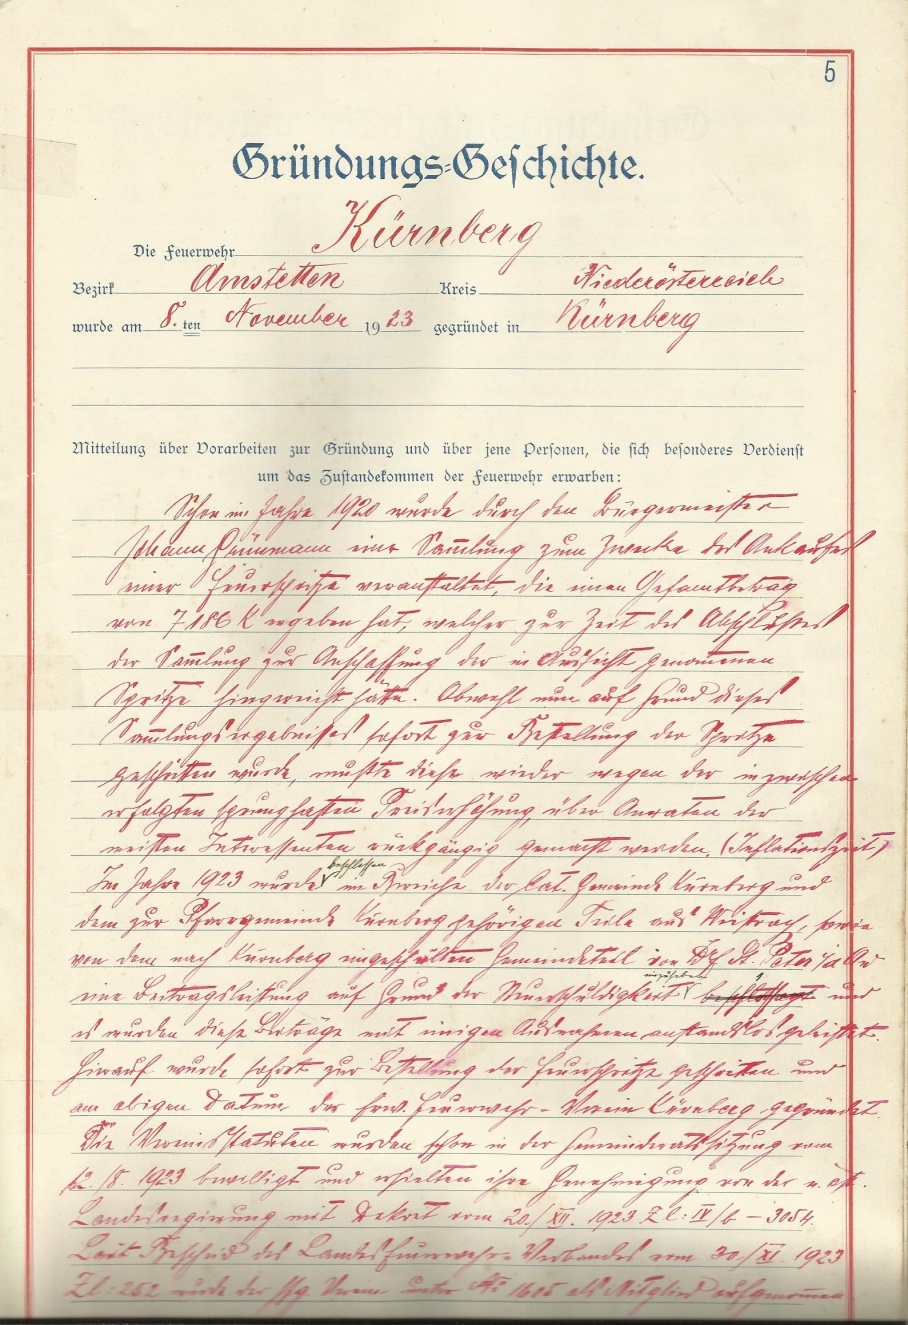 5
Gründungs-Geschichte.
Die Feuerwehr Kürnberg
Bezirk Amstetten Kreis Niederösterreich
wurde am 8. ten November 1923 gegründet in Kürnberg
Mitteilung über Vorarbeiten zur Gründung und über jene Personen, die sich besonderes Verdienst
um das Zustandekommen der Feuerwehr erwarben:
Schon im Jahre 1920 wurde durch den Bürgermeister
Johann eine Sammlung zum Zwecke des Ankaufes
einer Feuerspritze veranstaltet, die einen Gesamtbetrag
von 7186 K ergeben hat, welcher zur Zeit des Abschlußes
der Sammlung zur Anschaffung der in Aussicht genommenen
Spritze hingereicht hätte. Obwohl nun auf Grund dieses
Sammlungsergebnisses sofort zur Bestellung der Spritze
geschritten wurde, mußte diese wieder wegen der inzwischen
erfolgten sprunghaften Preiserhöhung, über Anraten der
meisten Interessenten rückgängig gemacht werden. (Inflationszeit)
beschlossen
Im Jahre 1923 wurde im Bereiche der Cat. Gemeinde Kürnberg und
dem zur Pfarrgemeinde Kürnberg gehörigen Teile aus Weistrach, sowie
von dem nach Kürnberg eingeschulten Gemeindeteil von St. Peter i/d Au
einzuheben
eine Beitragsleistung auf Grund der Steuerschuldigkeit und
es wurden diese Beträge mit einigen Ausnahmen anstandslos geleistet.
Hierauf wurde sofort zur Bestellung der Feuerspritze geschritten und
am obigen Datum der frw. Feuerwehr-Verein Kürnberg gegründet.
Die Vereinsstatuten wurden schon in der Gemeinderatssitzung vom
12./8. 1923 bewilligt und erhielten ihre Genehmigung von der n. öst.
Landesregierung mit Dekret vom 20./XII. 1923 Zl: IV/b - 3054
Laut Bescheid des Landesfeuerwehr-Verbandes vom 30./XI. 1923
Zl: 252 wurde der Verein unter No 1605 als Mitglied aufgenommen